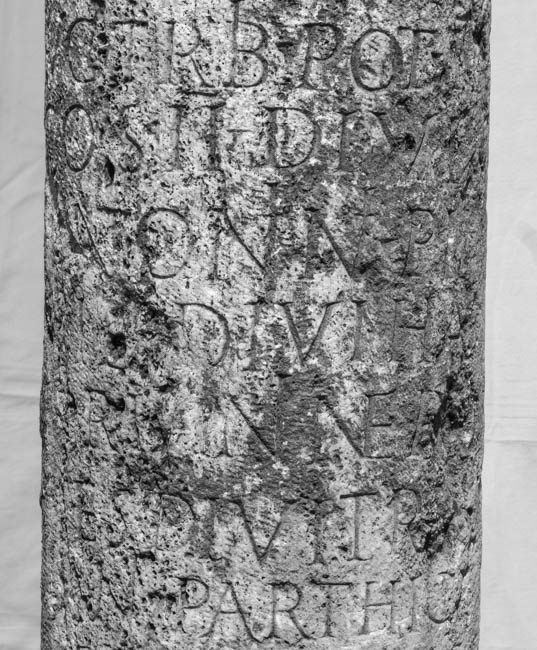 TRIB · POT
COS III · DIV
TONIN · P
DIVI H
RI · NEP
ET DIVI TR
PARTHIC